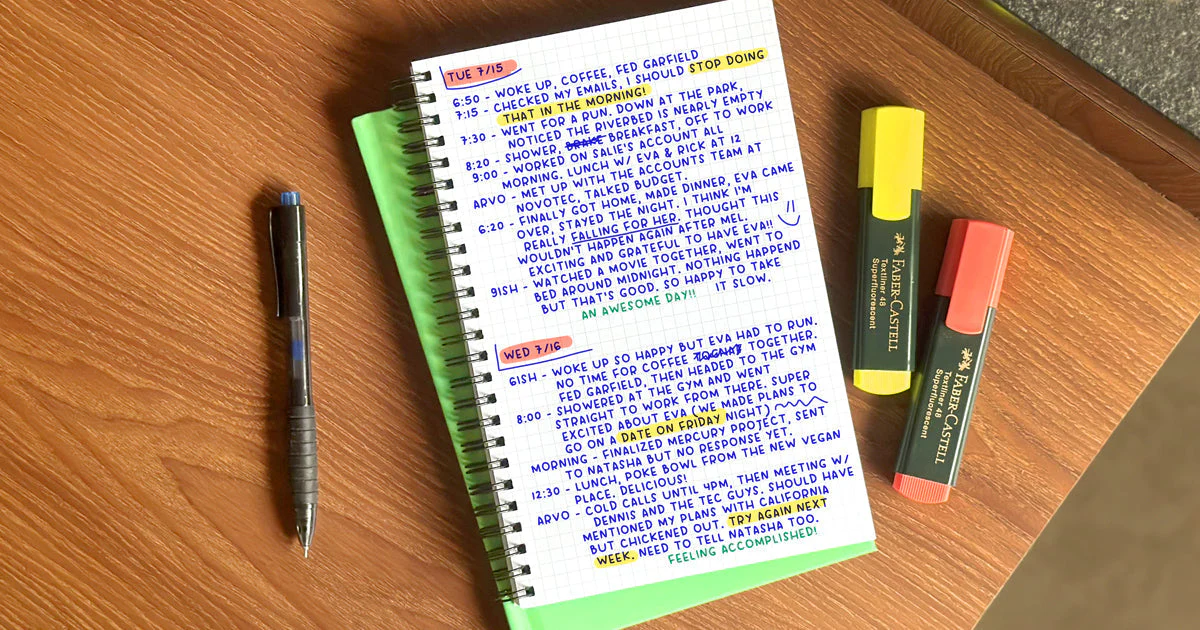 TUE 7/15
6:50 - WOKE UP, COFFEE, FED GARFIELD
7:15 - CHECKED MY EMAILS, I SHOULD STOP DOING
THAT IN THE MORNING!
7:30 - WENT FOR A RUN. DOWN AT THE PARK,
NOTICED THE RIVERBED IS NEARLY EMPTY
8:20 - SHOWER, BRAKE BREAKFAST, OFF TO WORK
9:00 - WORKED ON SALIE'S ACCOUNT ALL
MORNING. LUNCH W/ EVA & RICK AT 12
ARVO - MET UP WITH THE ACCOUNTS TEAM AT
NOVOTEC, TALKED BUDGET.
6:20 - FINALLY GOT HOME, MADE DINNER, EVA CAME
OVER, STAYED THE NIGHT. I THINK I'M
REALLY FALLING FOR HER. THOUGHT THIS
WOULDN'T HAPPEN AGAIN AFTER MEL.
EXCITING AND GRATEFUL TO HAVE EVA!!
9ISH - WATCHED A MOVIE TOGETHER, WENT TO
BED AROUND MIDNIGHT. NOTHING HAPPEND
BUT THAT'S GOOD. SO HAPPY TO TAKE
IT SLOW.
AN AWESOME DAY!!
WED 7/16
6ISH - WOKE UP SO HAPPY BUT EVA HAD TO RUN.
NO TIME FOR COFFEE TOGETHER.
FED GARFIELD, THEN HEADED TO THE GYM
8:00 - SHOWERED AT THE GYM AND WENT
STRAIGHT TO WORK FROM THERE. SUPER
EXCITED ABOUT EVA (WE MADE PLANS TO
GO ON A DATE ON FRIDAY NIGHT)
MORNING - FINALIZED MERCURY PROJECT, SENT
TO NATASHA BUT NO RESPONSE YET.
12:30 - LUNCH, POKE BOWL FROM THE NEW VEGAN
PLACE. DELICIOUS!
ARVO - COLD CALLS UNTIL 4PM, THEN MEETING W/
DENNIS AND THE TEC GUYS. SHOULD HAVE
MENTIONED MY PLANS WITH CALIFORNIA
BUT CHICKENED OUT. TRY AGAIN NEXT
WEEK. NEED TO TELL NATASHA TOO.
FEELING ACCOMPLISHED!
FABER-CASTELL
Textliner 48
Superfluorescent
FABER-CASTELL
Textliner 48
Superfluorescent